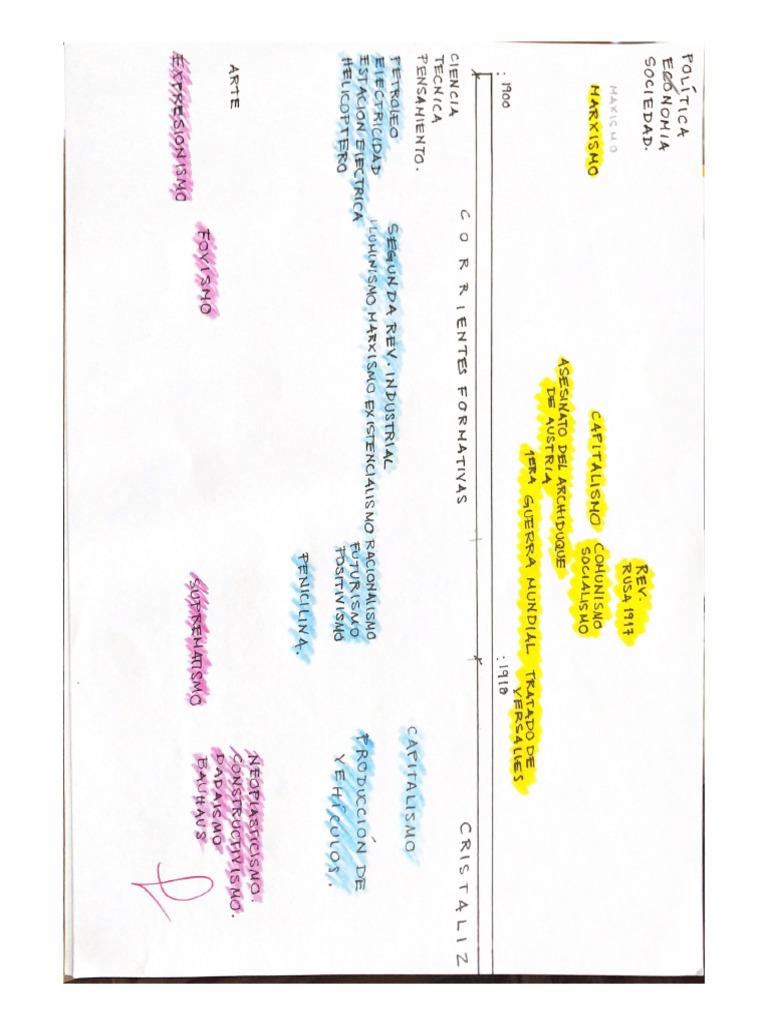 POLÍTICA
ECONOMIA
SOCIEDAD.
MAXISMO
MARXISMO
REV.
RUSA 1917
CAPITALISMO
COMUNISMO
SOCIALISMO
ASESINATO DEL ARCHIDUQUE
DE AUSTRIA
1ERA GUERRA MUNDIAL
TRATADO DE
VERSALLES
: 1900
: 1918
CORRIENTES FORMATIVAS
CRISTALIZ
CIENCIA
TECNICA
PENSAMIENTO.
PETROLEO
ELECTRICIDAD
ESTACION ELECTRICA
HELICOPTERO
SEGUNDA REV. INDUSTRIAL
ILUMINISMO MARXISMO EXISTENCIALISMO RACIONALISMO
FUTURISMO
POSITIVISMO
PENICILINA.
CAPITALISMO
PRODUCCIÓN DE
VEHÍCULOS.
ARTE
EXPRESIONISMO
FOVISMO
SUPREMATISMO
NEOPLASTICISMO.
CONSTRUCTIVISMO.
DADAISMO
BAUHAUS